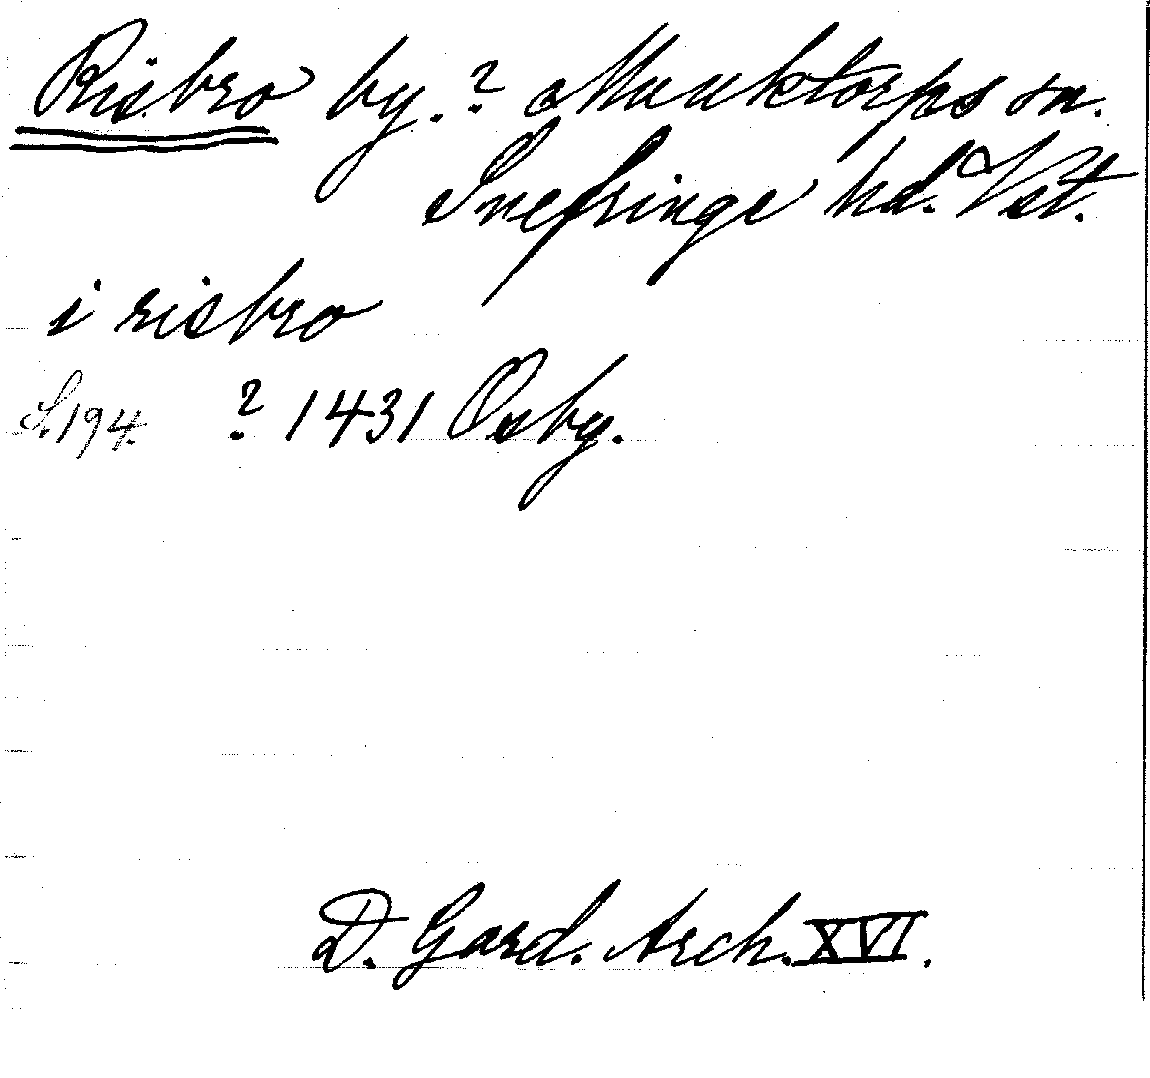 Risbro by.? Munktorps sn.
Snefringe hd. Vst.
i risbro
S. 194. ? 1431 Ösby.
D. Gard. Arch. XVI.